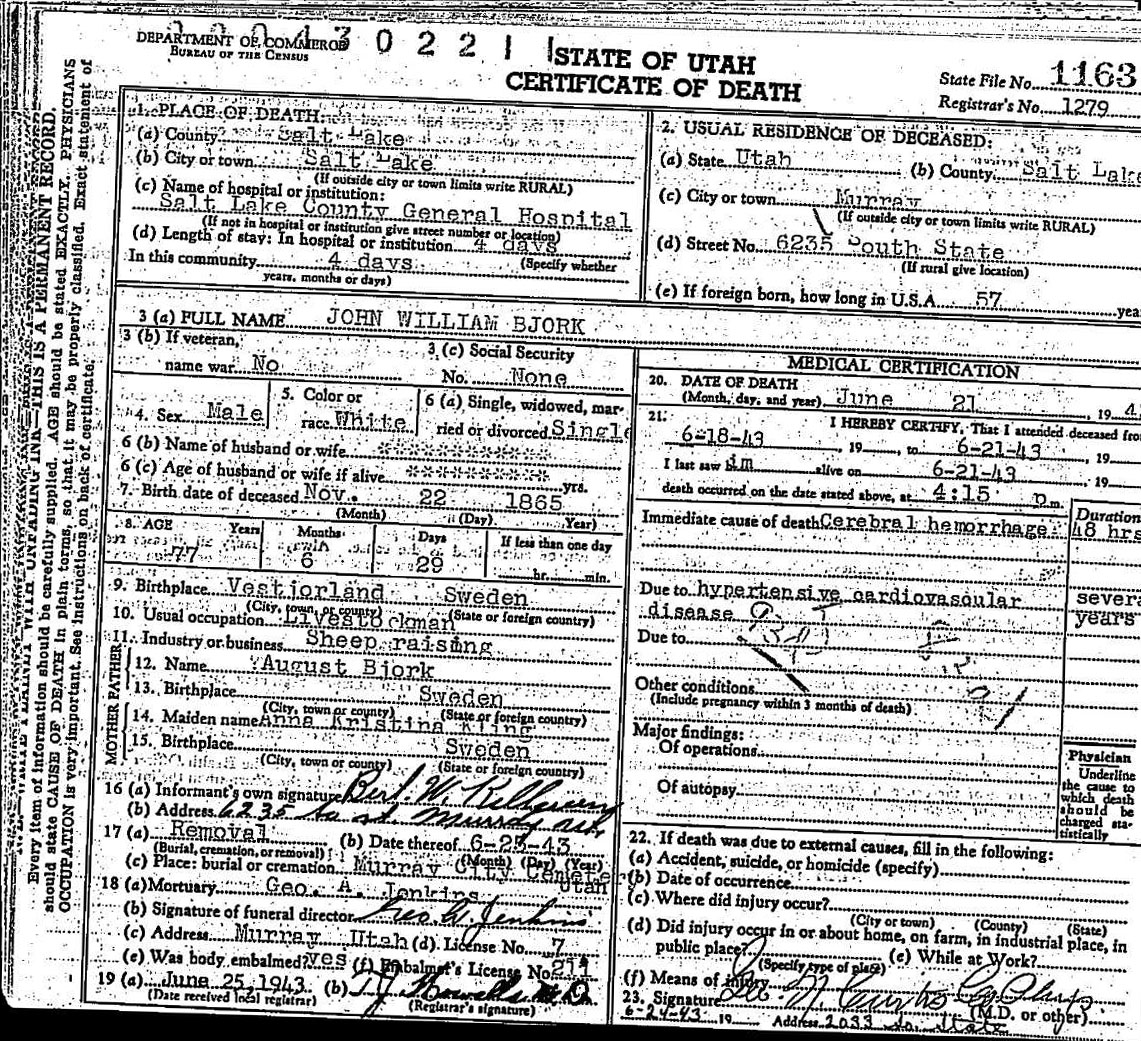 DEPARTMENT OF COMMERCE
BUREAU OF THE CENSUS
3 0 2 2 1 1
STATE OF UTAH
CERTIFICATE OF DEATH
State File No. 1163
Registrar's No. 1279
Every item of information should be carefully supplied. AGE should be stated EXACTLY. PHYSICIANS
should state CAUSE OF DEATH in plain terms, so that it may be properly classified. Exact statement of
OCCUPATION is very important. See instructions on back of certificate.
THIS IS A PERMANENT RECORD.
1. PLACE OF DEATH:
(a) County Salt Lake
(b) City or town Salt Lake
(If outside city or town limits write RURAL)
(c) Name of hospital or institution:
Salt Lake County General Hospital
(If not in hospital or institution give street number or location)
(d) Length of stay: In hospital or institution 4 days
In this community 4 days (Specify whether
years, months or days)
2. USUAL RESIDENCE OF DECEASED:
(a) State Utah (b) County Salt Lake
(c) City or town Murray
(If outside city or town limits write RURAL)
(d) Street No. 6235 South State
(If rural give location)
(e) If foreign born, how long in U.S.A. 57 yea
3 (a) FULL NAME JOHN WILLIAM BJORK
3 (b) If veteran,
name war No
3 (c) Social Security
No. None
4. Sex Male
5. Color or
race White
6 (a) Single, widowed, mar-
ried or divorced Single
6 (b) Name of husband or wife
6 (c) Age of husband or wife if alive yrs.
7. Birth date of deceased Nov. 22 1865
(Month) (Day) Year)
8. AGE Years Months Days If less than one day
77 6 29 hr. min.
9. Birthplace Vestjorland Sweden
(City, town, or county) (State or foreign country)
10. Usual occupation Livestockman
11. Industry or business Sheep raising
FATHER
12. Name August Bjork
13. Birthplace Sweden
(City, town or county) (State or foreign country)
MOTHER
14. Maiden name Anna Kristina Kling
15. Birthplace Sweden
(City, town or county) (State or foreign country)
16 (a) Informant's own signature Bert. W.
(b) Address 6235 So st. Murray
17 (a) Removal (b) Date thereof 6-25-43
(Burial, cremation, or removal) (Month) (Day) (Year)
(c) Place: burial or cremation Murray City Cemetery
Utah
18 (a) Mortuary Geo. A. Jenkins
(b) Signature of funeral director Geo. A. Jenkins
(c) Address Murray Utah (d). License No. 7
(e) Was body embalmed? yes (f) Embalmer's License No. 211
19 (a) June 25, 1943 (b) T. J. Howells M.D.
(Date received local registrar) (Registrar's signature)
MEDICAL CERTIFICATION
20. DATE OF DEATH
(Month, day, and year) June 21, 19 4
21. I HEREBY CERTIFY, That I attended deceased from
6-18-43, 19, to 6-21-43, 19
I last saw im alive on 6-21-43, 19
death occurred on the date stated above, at 4:15 p.m.
Immediate cause of death Cerebral hemorrhage
Duration
48 hrs
Due to hypertensive cardiovascular
disease
sever
years
Due to
Other conditions
(Include pregnancy within 3 months of death)
Major findings:
Of operations
Of autopsy
Physician
Underline
the cause to
which death
should be
charged sta-
tistically
22. If death was due to external causes, fill in the following:
(a) Accident, suicide, or homicide (specify)
(b) Date of occurrence
(c) Where did injury occur?
(City or town) (County) (State)
(d) Did injury occur in or about home, on farm, in industrial place, in
public place?
(Specify type of place) (e) While at Work?
(f) Means of injury
23. Signature Geo. N. Curtis
(M.D. or other)
6-24-43 19 Address 2033 So. State